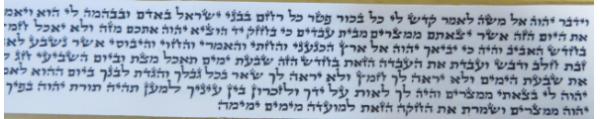 וידבר יהוה אל משה לאמר קדש לי כל בכור פטר כל רחם בבני ישראל באדם ובבהמה לי הוא
את היום הזה אשר יצאתם ממצרים מבית עבדים כי בחזק יד הוציא יהוה אתכם מזה ולא יאכל
בחדש האביב והיה כי יביאך יהוה אל ארץ הכנעני והחתי והאמרי והחוי והיבוסי אשר נשבע
זבת חלב ודבש ועבדת את העבדה הזאת בחדש הזה שבעת ימים תאכל מצת וביום השביעי חג
את שבעת הימים ולא יראה לך חמץ ולא יראה לך שאר בכל גבלך והגדת לבנך ביום ההוא
יהוה לי בצאתי ממצרים והיה לך לאות על ידך ולזכרון בין עיניך למען תהיה תורת יהוה בפיך
יהוה ממצרים ושמרת את החקה הזאת למועדה מימים ימימה